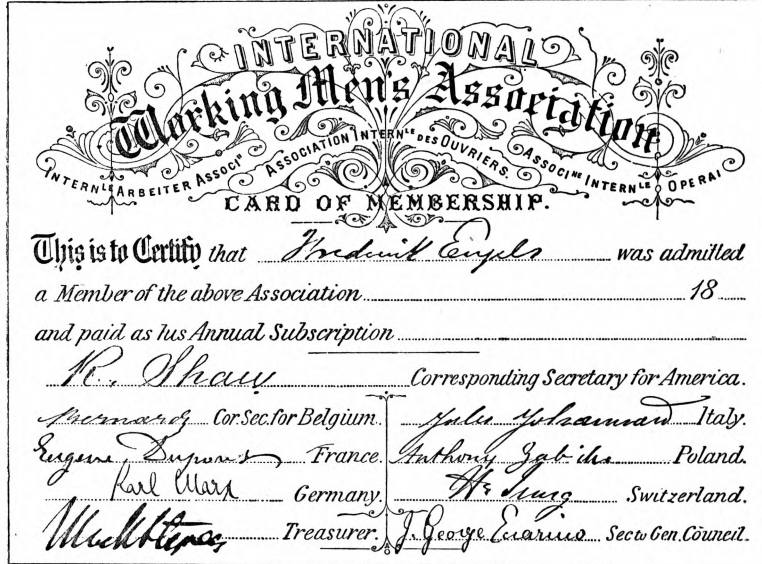 INTERNATIONAL
Working Men's Association
INTERN^LE ARBEITER ASSOCI^N ASSOCIATION INTERN^LE DES OUVRIERS. ASSOCI^NE INTERN^LE OPERAI
CARD OF MEMBERSHIP.
This is to Certify that Frederick Engels was admitted
a Member of the above Association 18
and paid as his Annual Subscription
R. Shaw Corresponding Secretary for America.
Bernard Cor. Sec. for Belgium. Jules Johannard Italy.
Eugene Dupont France. Anthony Zabicki Poland.
Karl Marx Germany. H. Jung Switzerland.
Treasurer. J. George Eccarius Sec to Gen. Council.